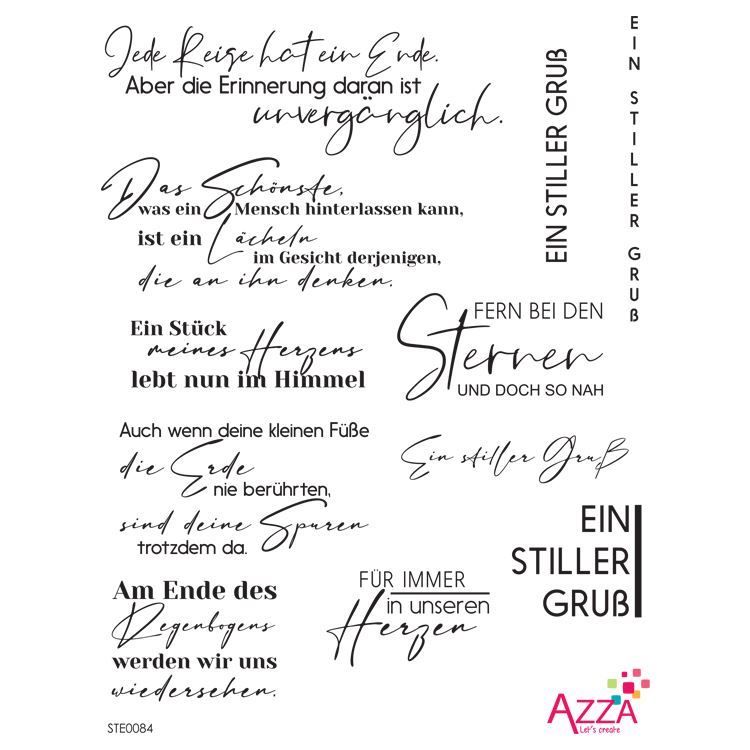 Jede Reise hat ein Ende.
Aber die Erinnerung daran ist
unvergänglich.
Das Schönste,
was ein Mensch hinterlassen kann,
ist ein Lächeln
im Gesicht derjenigen,
die an ihn denken.
Ein Stück
meines Herzens
lebt nun im Himmel
Auch wenn deine kleinen Füße
die Erde
nie berührten,
sind deine Spuren
trotzdem da.
Am Ende des
Regenbogens
werden wir uns
wiedersehen.
EIN STILLER GRUß
EIN STILLER GRUß
FERN BEI DEN
Sternen
UND DOCH SO NAH
Ein stiller Gruß
EIN
STILLER
GRUß
FÜR IMMER
in unseren
Herzen
STE0084
AZZA
Let's create